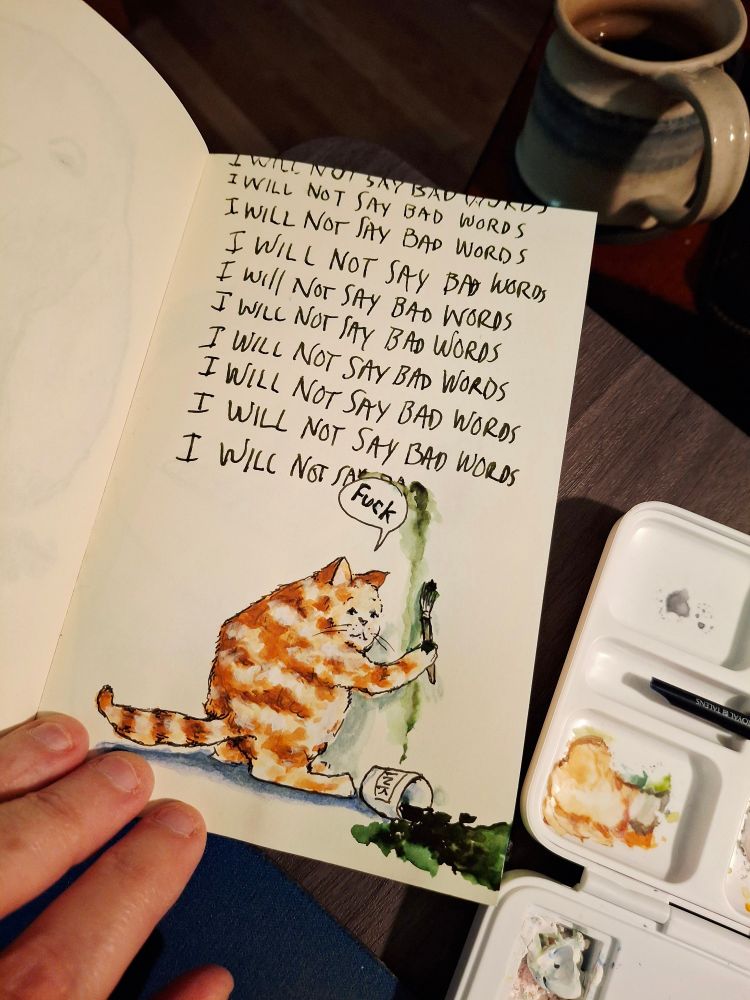 I WILL NOT SAY BAD WORDS
I WILL NOT SAY BAD WORDS
I WILL NOT SAY BAD WORDS
I WILL NOT SAY BAD WORDS
I Will NOT SAY BAD WORDS
I WILL NOT SAY BAD WORDS
I WILL NOT SAY BAD WORDS
I WILL NOT SAY BAD WORDS
I WILL NOT SAY BAD WORDS
I WILL NOT SAY BA
Fuck
INK
ROYAL TALENS